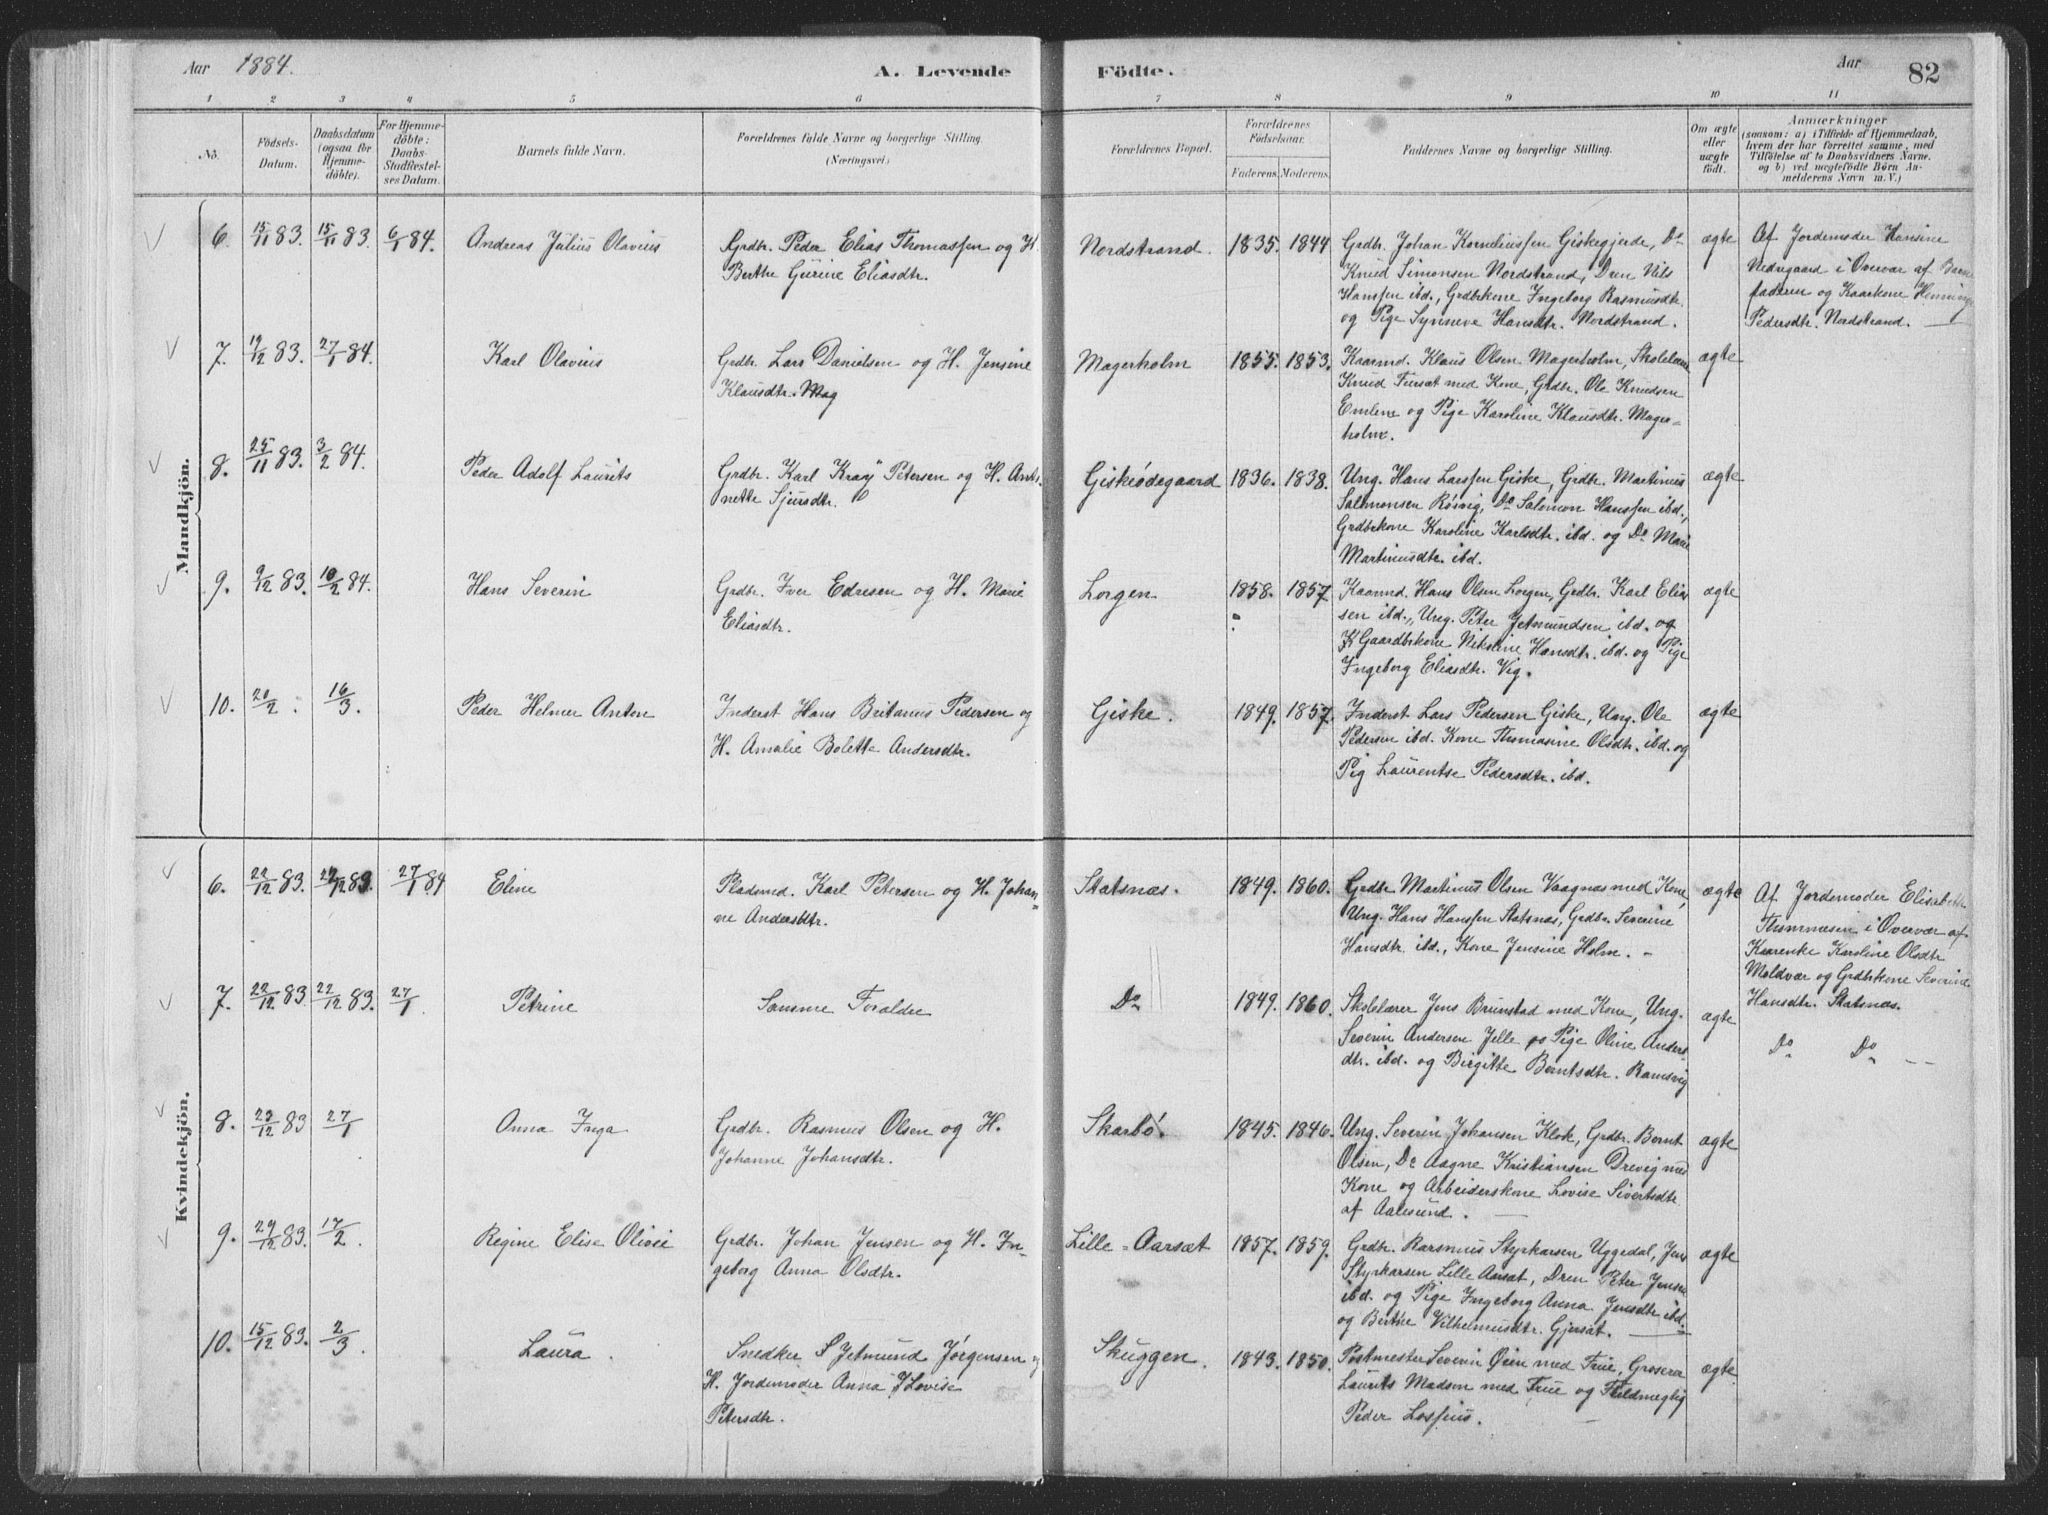 Aar 1884.
A. Levende Födte.
Aar 82
1 2 3 4 5 6 7 8 9 10 11
No.
Födsels-
Datum.
Daabsdatum
(ogsaa for
Hjemme-
döbte).
For Hjemme-
döbte:
Daabs-
Stadfæstel-
ses Datum.
Barnets fulde Navn.
Forældrenes fulde Navne og borgerlige Stilling
(Næringsvei).
Forældrenes Bopæl.
Forældrenes
Födselsaar.
Faderens. Moderens.
Faddernes Navne og borgerlige Stilling.
Om ægte
eller
uægte
födt.
Anmærkninger
(saasom: a) i Tilfælde af Hjemmedaab,
hvem der har forrettet samme, med
Tilföielse af to Daabsvidners Navne.
og b) ved uægtefödte Börn An-
melderens Navn m. V.)
Mandkjön.
6. 15/11 83. 15/11 83. 6/1 84.
Andreas Julius Olavius
Grdbr. Peder Elias Thomassen og H.
Berthe Gurine Eliasdtr.
Nordstrand. 1835. 1844
Grdbr. Johan Korneliussen Giskegjerde, Do
Knud Simonsen Nordstrand, Dren Nils
Hanssen ibd., Grdbrkone Ingeborg Rasmusdtr.
og Pige Synneve Hansdtr. Nordstrand.
ægte
Af Jordemoder Hansine
Nedregaard i Overvær af Barne
faderen og Kaarkone Henninge
Pedersdtr. Nordstrand.
7. 19/12 83. 27/1 84.
Karl Olavius
Grdbr. Lars Danielsen og H. Jensine
Klausdtr. Mag
Magerholm 1855. 1853.
Kaarmd. Klaus Olsen Magerholm, Skolelærer
Knud Tursæt med Kone, Grdbr. Ole Knudsen
Emlene og Pige Karoline Klausdtr. Mager-
holm.
ægte
8. 25/11 83. 3/2 84.
Peder Adolf Laurits
Grdbr. Karl Kray Petersen og H. Ant-
nette Sjursdtr.
Giskeödegaard 1836. 1838.
Ung. Hans Larssen Giske, Grdbr. Martinus
Salmonsen Rösvig, Do Salomon Hanssen ibd.,
Grdbrkone Karoline Karlsdtr. ibd. og Do Marie
Martinusdtr. ibd.
ægte
9. 9/12 83. 10/2 84.
Hans Severin
Grdbr. Iver Edresen og H. Marie
Eliasdtr.
Lorgen 1858. 1857
Kaarmd. Hans Olsen Lorgen, Grdbr. Karl Elias
sen ibd., Ung. Peter Jetmundsen ibd. og
Gaardbrkone Nikoline Hansdtr. ibd. og Pige
Ingeborg Eliasdtr. Vig.
ægte
10. 20/2 16/3.
Peder Helmer Anton
Inderst Hans Britanus Pedersen og
H. Amalie Bolette Andersdtr.
Giske. 1849. 1857.
Inderst Lars Pedersen Giske, Ung. Ole
Pedersen ibd. Kone Thomasine Olsdtr. ibd. og
Pig Laurentse Pedersdtr. ibd.
ægte
Kvindekjön.
6. 22/12 83. 22/12 83. 27/1 84
Eline
Pladsmd. Karl Petersen og H. Johan-
ne Andersdtr.
Statsnæs. 1849. 1860.
Grdbr Martinus Olsen Vaagnæs med Kone,
Ung. Hans Hanssen Statsnæs, Grdbr. Severine
Hansdtr ibd., Kone Jensine Holm. -
ægte
Af Jordemoder Elisabeth
i Overvær af
Karoline Olsdtr
Moldvær og Grdbrkone Severine
Hansdtr. Statsnæs.
7. 22/12 83. 22/12 83. 27/1.
Petrine
Samme Foraldre
Do 1849. 1860.
Skolelærer Jens Brunstad med Kone, Ung.
Severin Andersen Jelle Pige Oline Anders-
dtr. ibd. og Birgitte Berntsdtr. Ramsvig
ægte
Do Do
8. 22/12 83 27/1
Anna Inga
Grdbr. Rasmus Olsen og H.
Johanne Johansdtr.
Skarbö. 1845. 1846.
Ung. Severin Johansen Klok, Grdbr. Bernt
Olsen, Do Aagne Kristiansen Drevig med
Kone og Arbeiderskone Lovise Sivertsdtr
af Aalesund.
ægte
9. 29/12 83. 17/2.
Regine Elise Olivie
Grdbr. Johan Jensen og H. In-
geborg Anna Olsdtr.
Lille-Aarsæt 1857. 1859.
Grdbr. Rasmus Styrkarsen Uggedal, Jens
Styrkarsen Lille Aarsæt, Dren Peter Jensen
ibd. og Pige Ingeborg Anna Jensdtr ibd.
og Berthe Vilhelmusdtr. Gjersæt.
ægte
10. 15/12 83. 2/3.
Laura.
Snedker S Jetmund Jörgensen og
H. Jordemoder Anna Lovise
Petersdtr.
Skuggen. 1843. 1850.
Postmester Severin Öien med Frue, Grosserer
Laurits Madsen med Frue og Fuldmægtig
Peder Lossius.
ægte